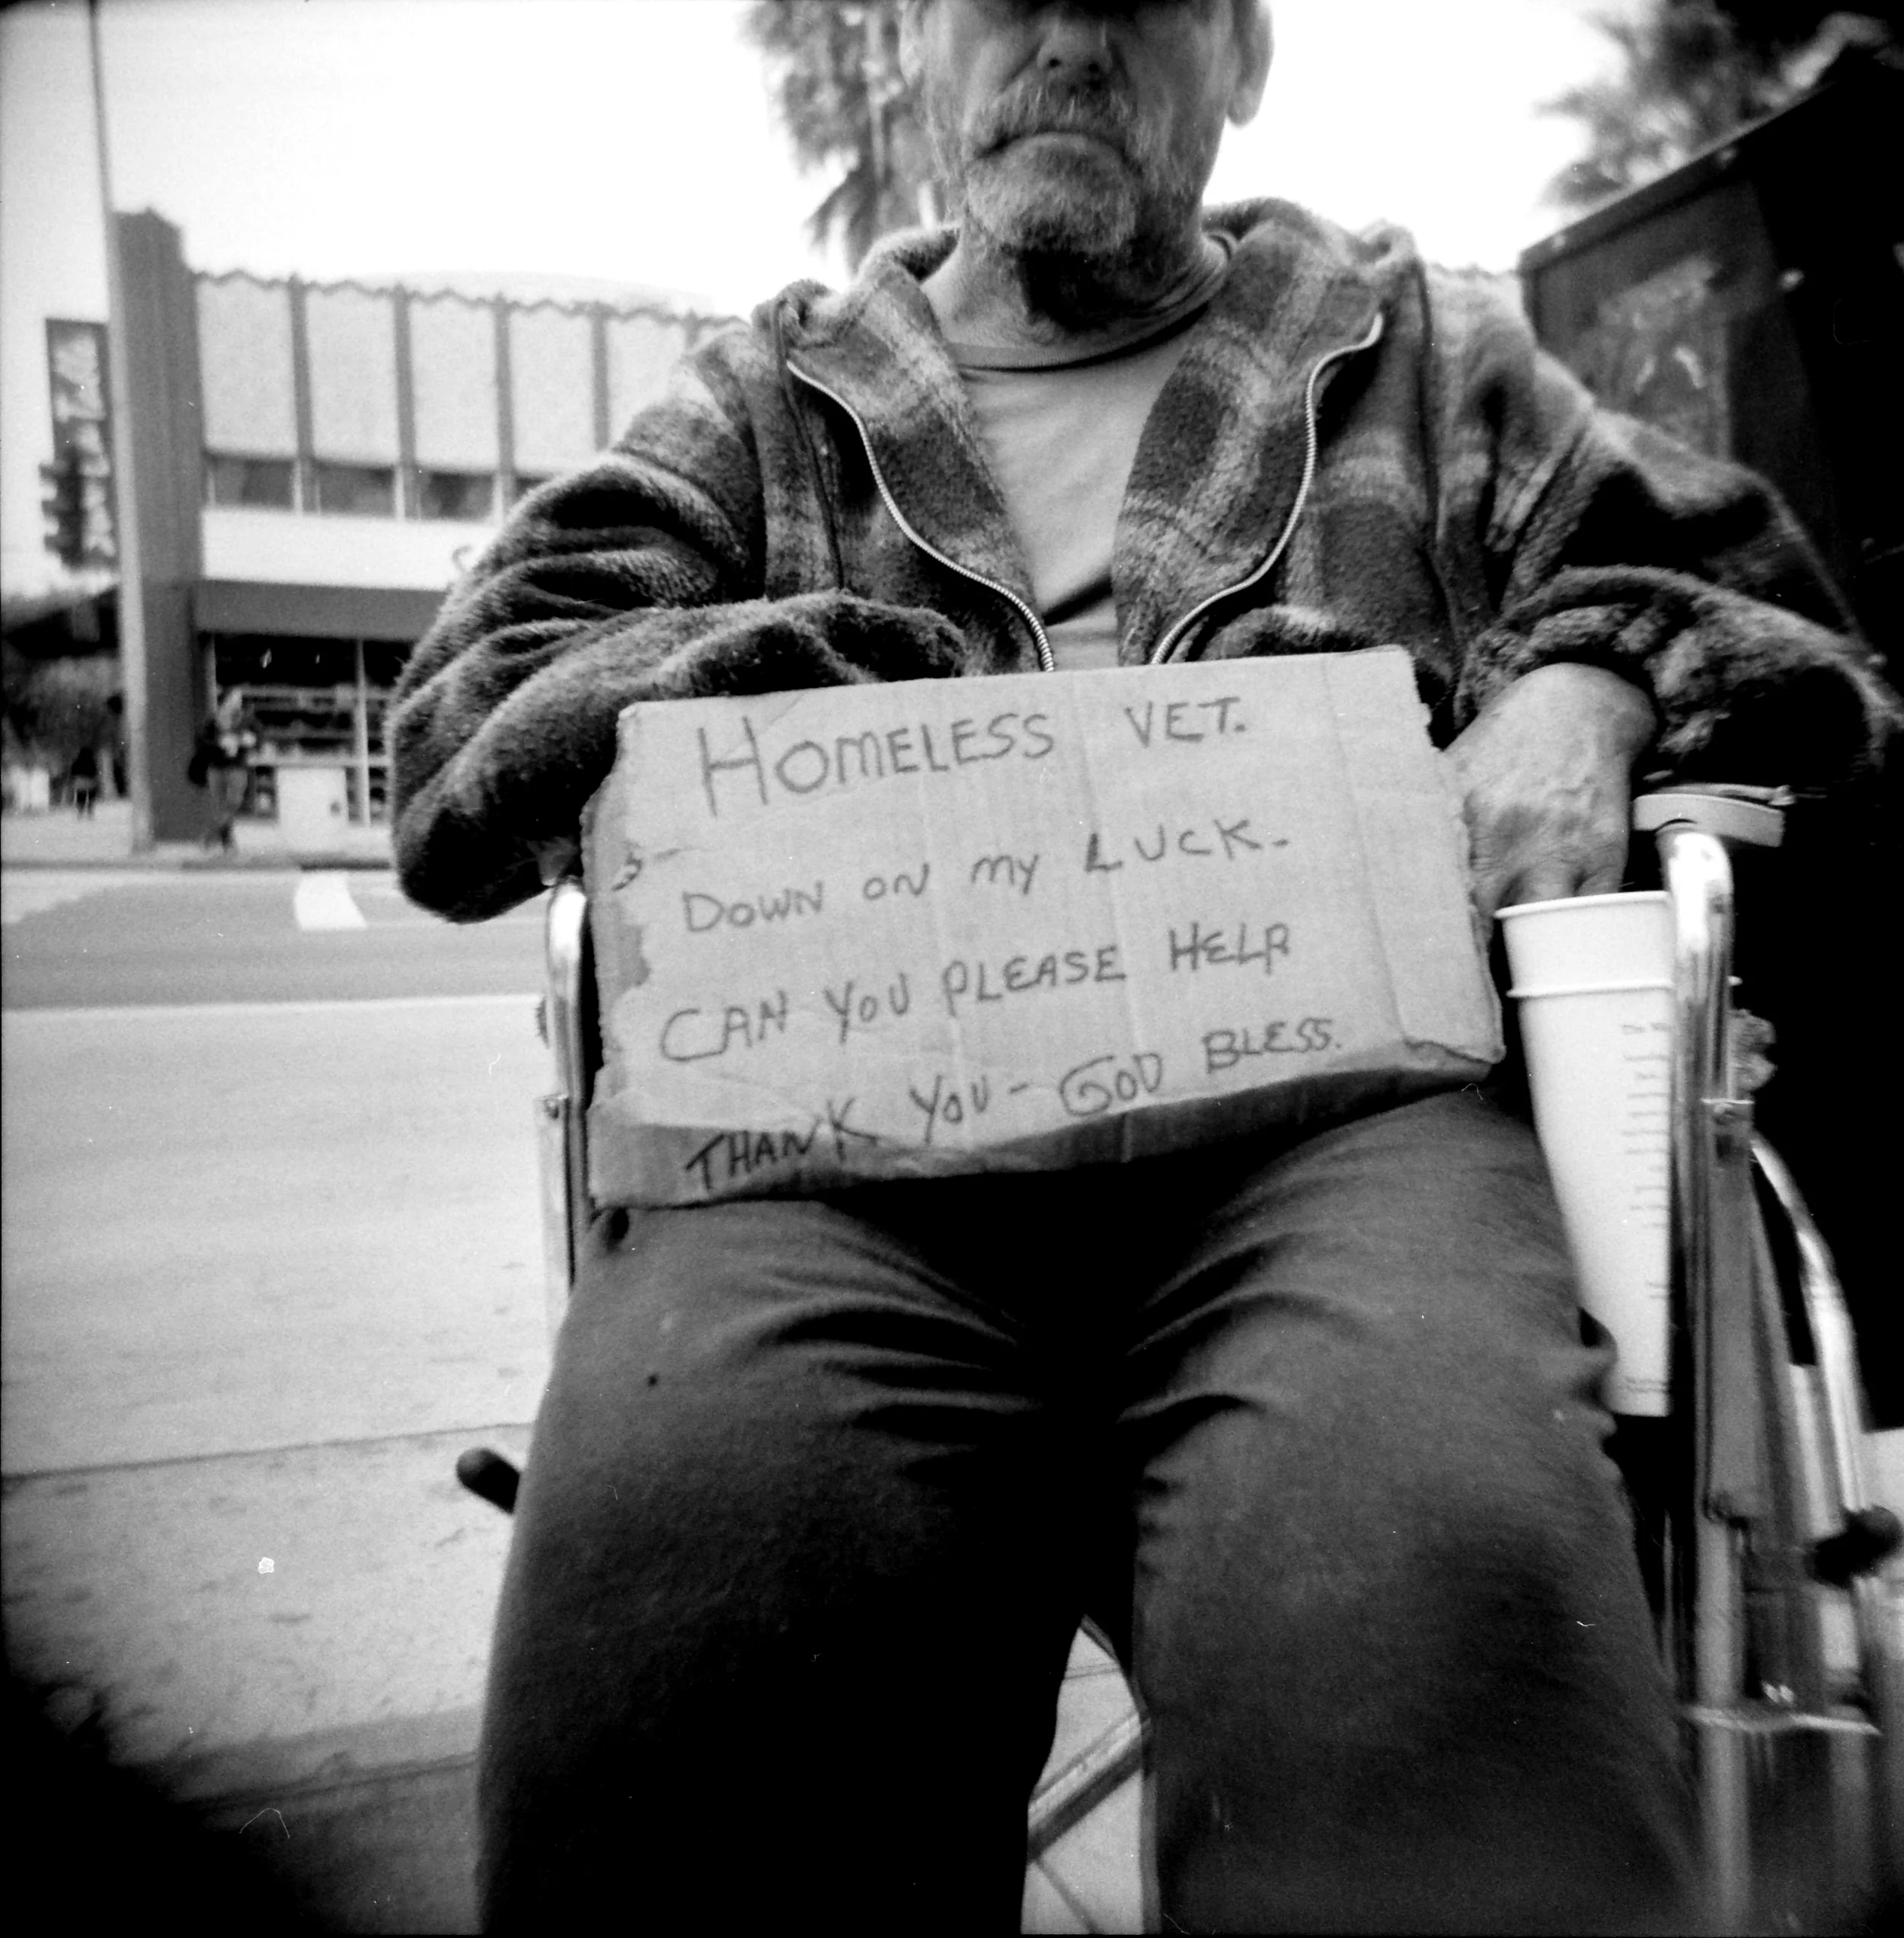 HOMELESS VET.
DOWN ON MY LUCK.
CAN YOU PLEASE HELP
THANK YOU - GOD BLESS.